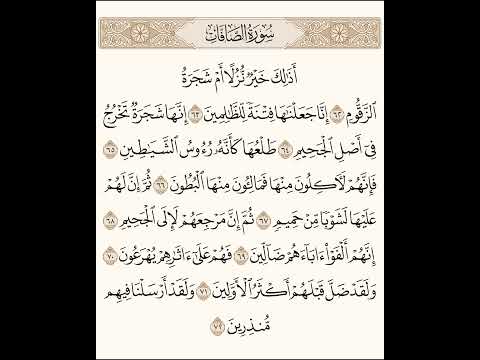 سُورَةُ الصَّافَّاتِ
أَذَٰلِكَ خَيْرٌ نُّزُلًا أَمْ شَجَرَةُ
ٱلزَّقُّومِ ٦٢ إِنَّا جَعَلْنَٰهَا فِتْنَةً لِّلظَّٰلِمِينَ ٦٣ إِنَّهَا شَجَرَةٌ تَخْرُجُ
فِىٓ أَصْلِ ٱلْجَحِيمِ ٦٤ طَلْعُهَا كَأَنَّهُۥ رُءُوسُ ٱلشَّيَٰطِينِ ٦٥
فَإِنَّهُمْ لَءَاكِلُونَ مِنْهَا فَمَالِـُٔونَ مِنْهَا ٱلْبُطُونَ ٦٦ ثُمَّ إِنَّ لَهُمْ
عَلَيْهَا لَشَوْبًا مِّنْ حَمِيمٍ ٦٧ ثُمَّ إِنَّ مَرْجِعَهُمْ لَإِلَى ٱلْجَحِيمِ ٦٨
إِنَّهُمْ أَلْفَوْا۟ ءَابَآءَهُمْ ضَآلِّينَ ٦٩ فَهُمْ عَلَىٰٓ ءَاثَٰرِهِمْ يُهْرَعُونَ ٧٠
وَلَقَدْ ضَلَّ قَبْلَهُمْ أَكْثَرُ ٱلْأَوَّلِينَ ٧١ وَلَقَدْ أَرْسَلْنَا فِيهِم
مُّنذِرِينَ ٧٢